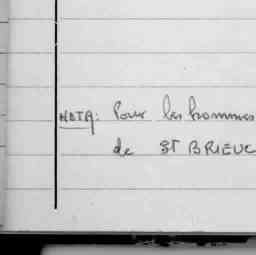 NOTA: Pour les hommes
de ST BRIEUC